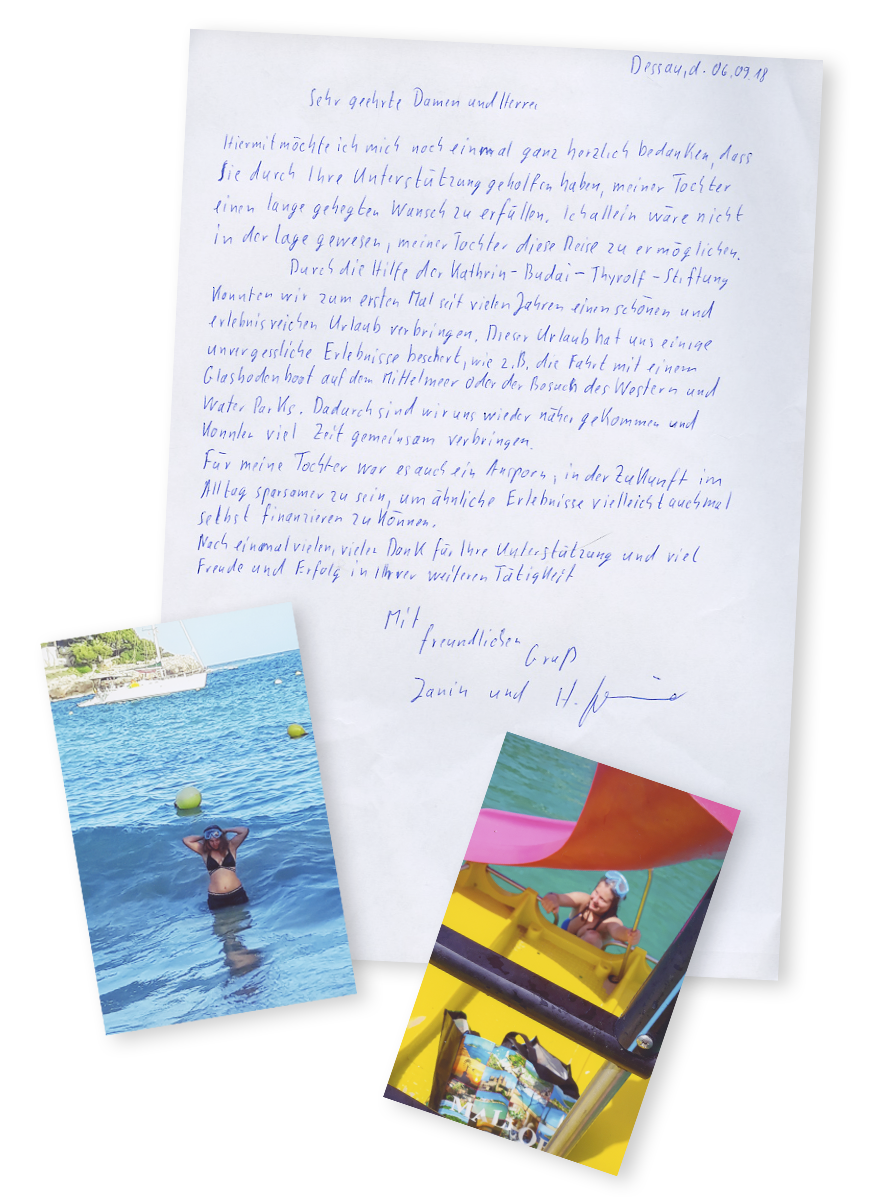 Dessau, d. 06.09.18
Sehr geehrte Damen und Herren
Hiermit möchte ich mich noch einmal ganz herzlich bedanken, dass
Sie durch Ihre Unterstützung geholfen haben, meiner Tochter
einen lange gehegten Wunsch zu erfüllen. Ich allein wäre nicht
in der Lage gewesen, meiner Tochter diese Reise zu ermöglichen.
Durch die Hilfe der Kathrin-Budai-Thyrolf-Stiftung
konnten wir zum ersten Mal seit vielen Jahren einen schönen und
erlebnisreichen Urlaub verbringen. Dieser Urlaub hat uns einige
unvergessliche Erlebnisse beschert, wie z.B. die Fahrt mit einem
Glasbodenboot auf dem Mittelmeer oder der Besuch des Western und
Water Parks. Dadurch sind wir uns wieder näher gekommen und
konnten viel Zeit gemeinsam verbringen.
Für meine Tochter war es auch ein Ansporn, in der Zukunft im
Alltag sparsamer zu sein, um ähnliche Erlebnisse vielleicht auch mal
selbst finanzieren zu können.
Noch einmal vielen, vielen Dank für Ihre Unterstützung und viel
Freude und Erfolg in Ihrer weiteren Tätigkeit
Mit
freundlichen
Gruß
Janin und H.